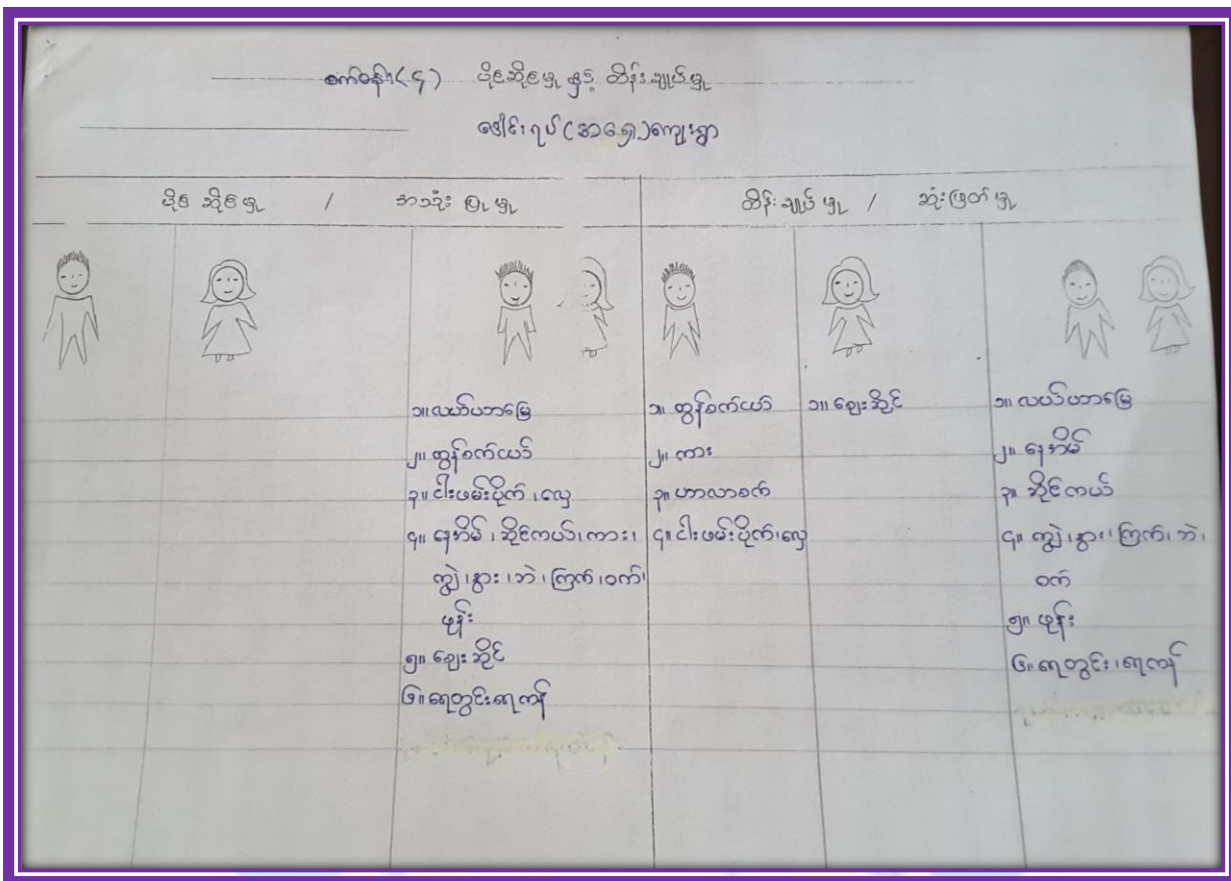 စက်ဝန်း(၄) ပိုင်ဆိုင်မှု နှင့် ထိန်းချုပ်မှု
ဖေါင်းရပ်(အရှေ့)ကျေးရွာ
ပိုင် ဆိုင် မှု / အသုံး ပြု မှု
ထိန်း ချုပ် မှု / ဆုံးဖြတ် မှု
၁။ လယ်ယာမြေ
၂။ ထွန်စက်ယာ်
၃။ ငါးဖမ်းပိုက် ၊လှေ
၄။ နေအိမ် ၊ ဆိုင်ကယ်၊ ကား၊
ကျွဲ ၊နွား ၊ဘဲ ၊ကြက် ၊ဝက်၊
ဖုန်း
၅။ ဈေး ဆိုင်
၆။ ရေတွင်းရေကန်
၁။ ထွန်စက်ယာ်
၂။ ကား
၃။ ဟာလာစက်
၄။ ငါးဖမ်းပိုက်၊လှေ
၁။ ဈေးဆိုင်
၁။ လယ်ယာမြေ
၂။ နေအိမ်
၃။ ဆိုင်ကယ်
၄။ ကျွဲ ၊နွား၊ ကြက်၊ ဘဲ၊
ဝက်
၅။ ဖုန်း
၆။ ရေတွင်း ၊ရေကန်